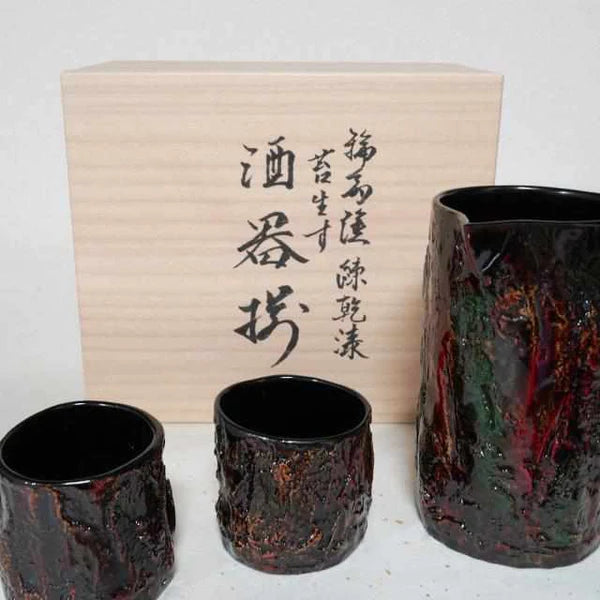 輪島塗 練乾漆
苔生す
酒器揃